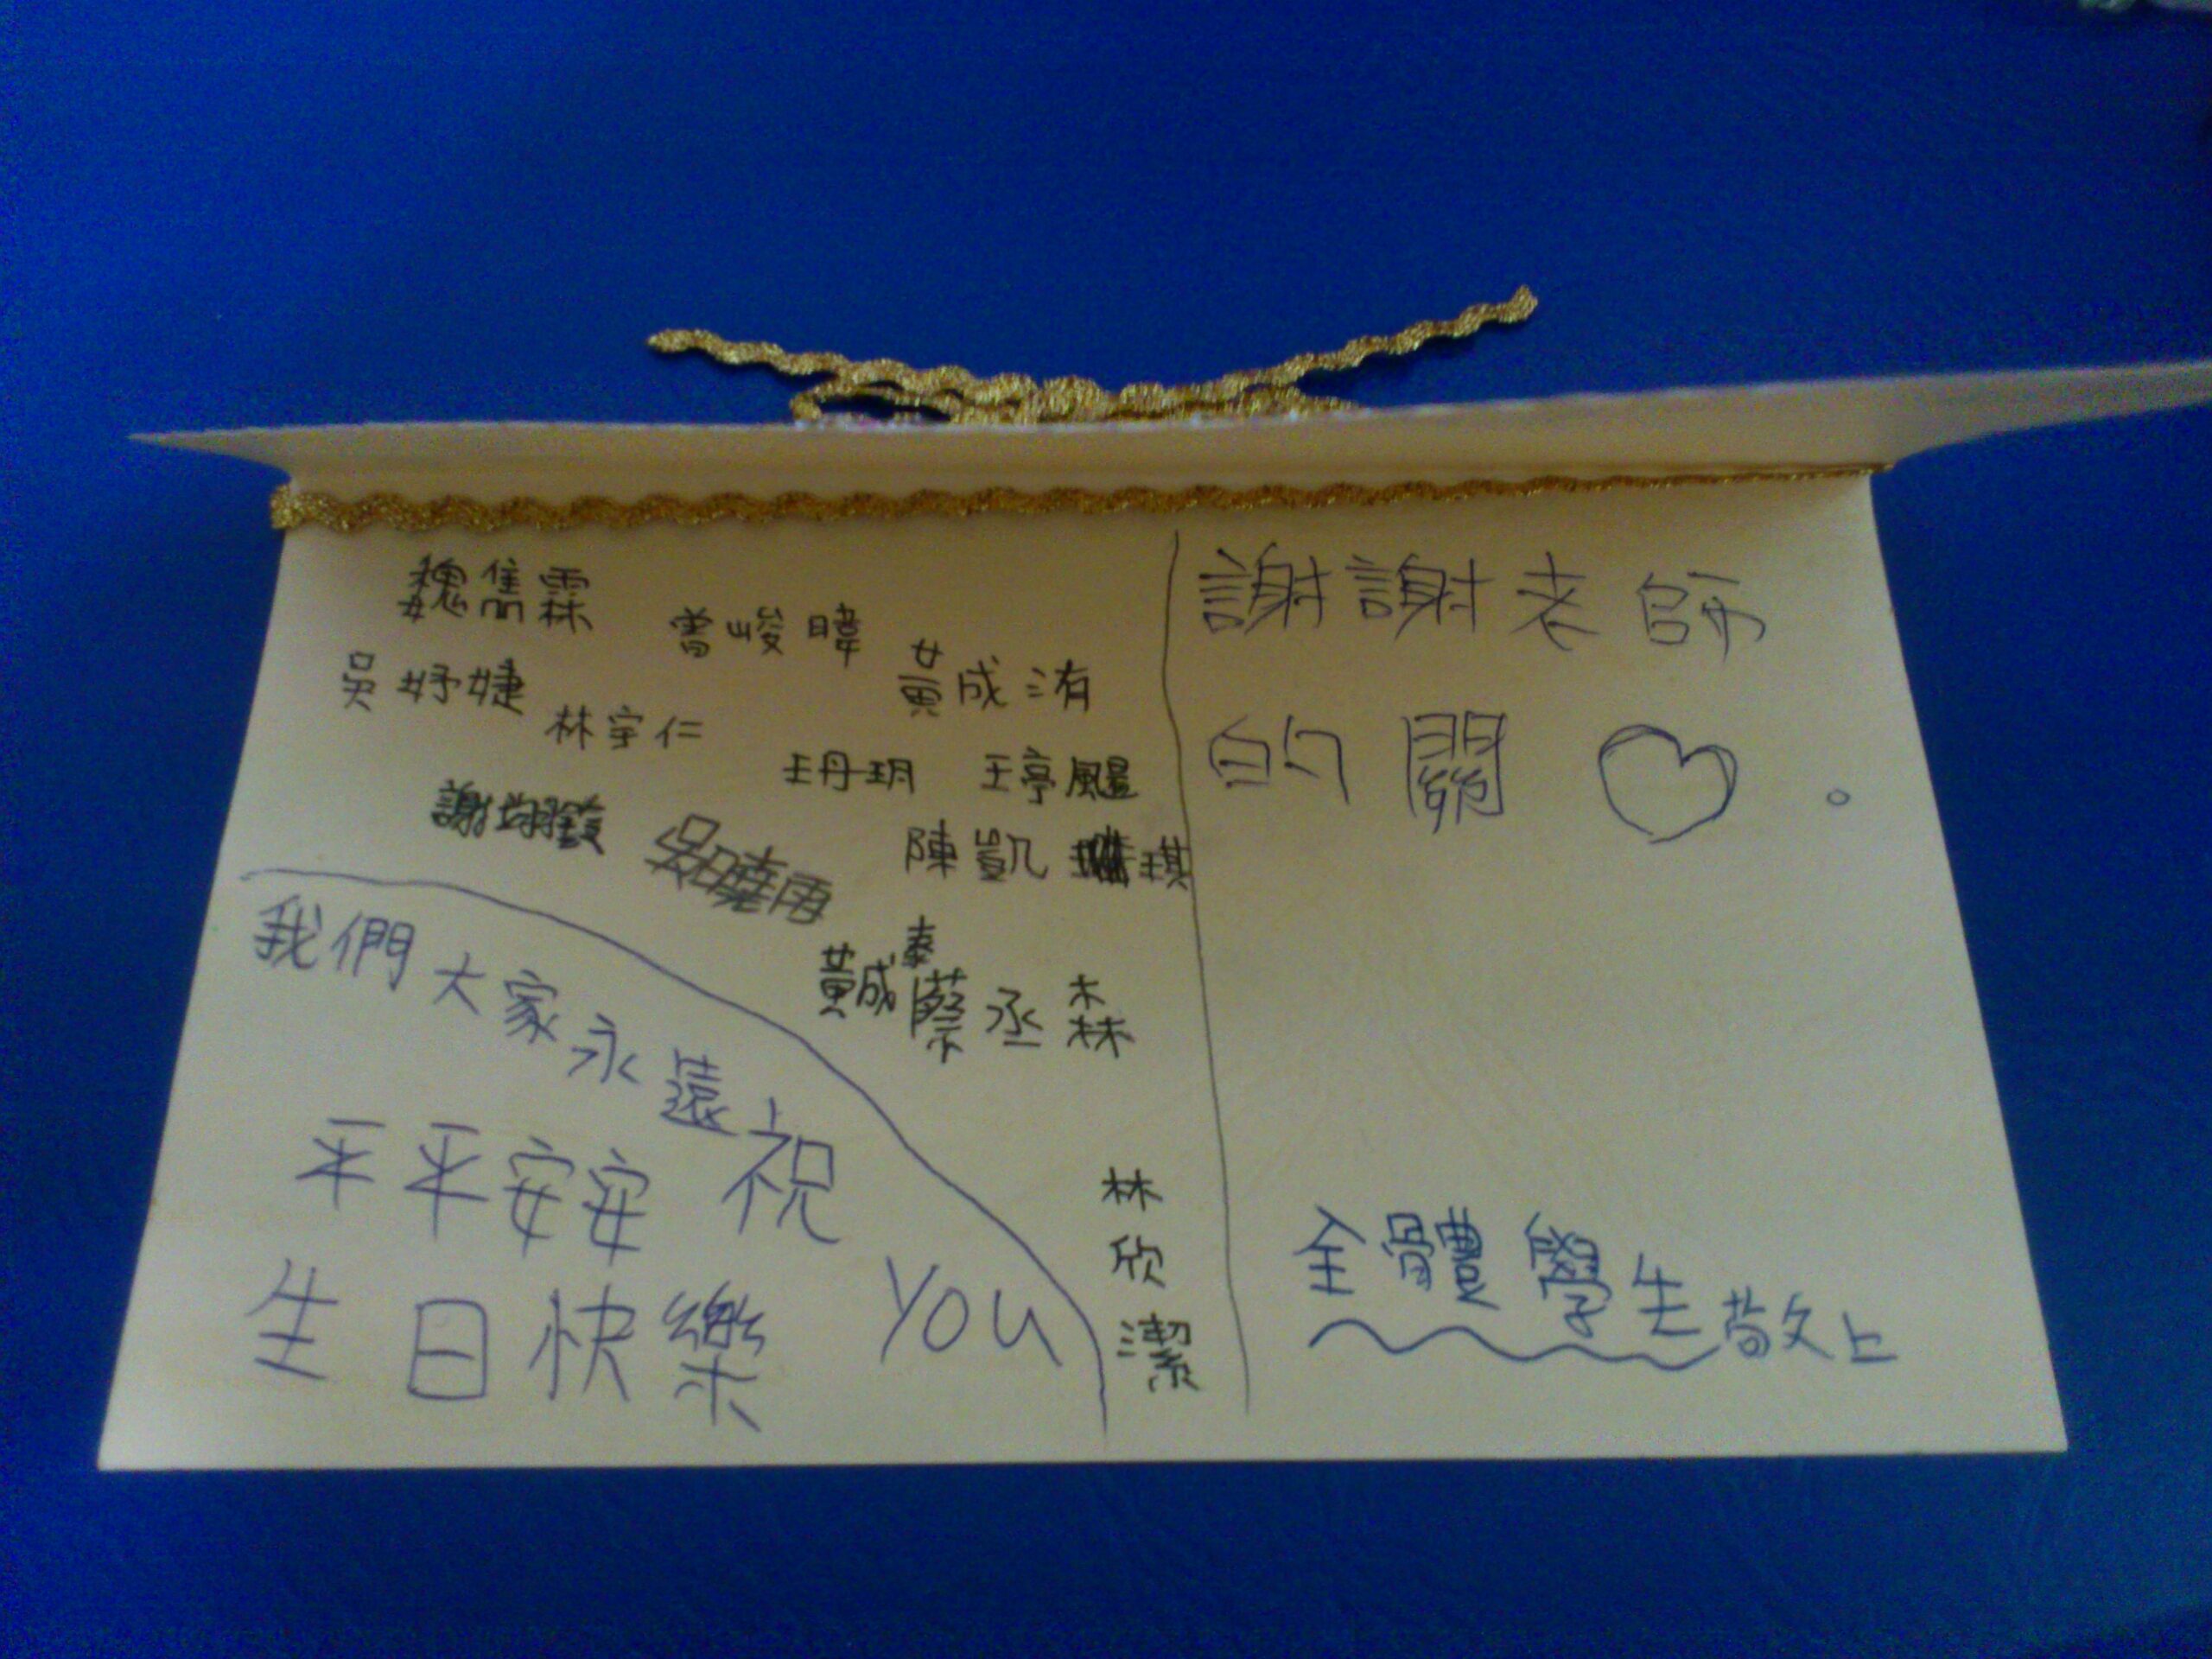 謝謝老師
的關♡。
全體學生敬上
曾峻暐
吳妤婕
黃成洧
林宇仁
王丹玥
王亭颺
吳曉雨
陳凱琪
黃成泰
蔡丞森
林欣潔
我們大家永遠祝
YOU
平平安安
生日快樂